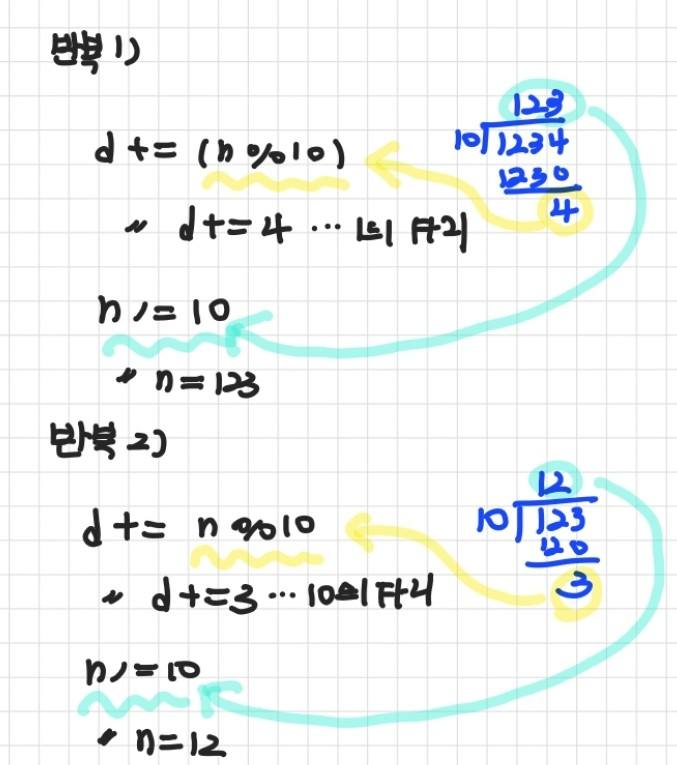 반복 1)
123
d += (n%10)
10)1234
1230
〃 d+=4 … 1의 자리
4
n /= 10
〃 n=123
반복 2)
12
d += n%10
10)123
120
〃 d+=3 … 10의 자리
3
n /= 10
〃 n=12